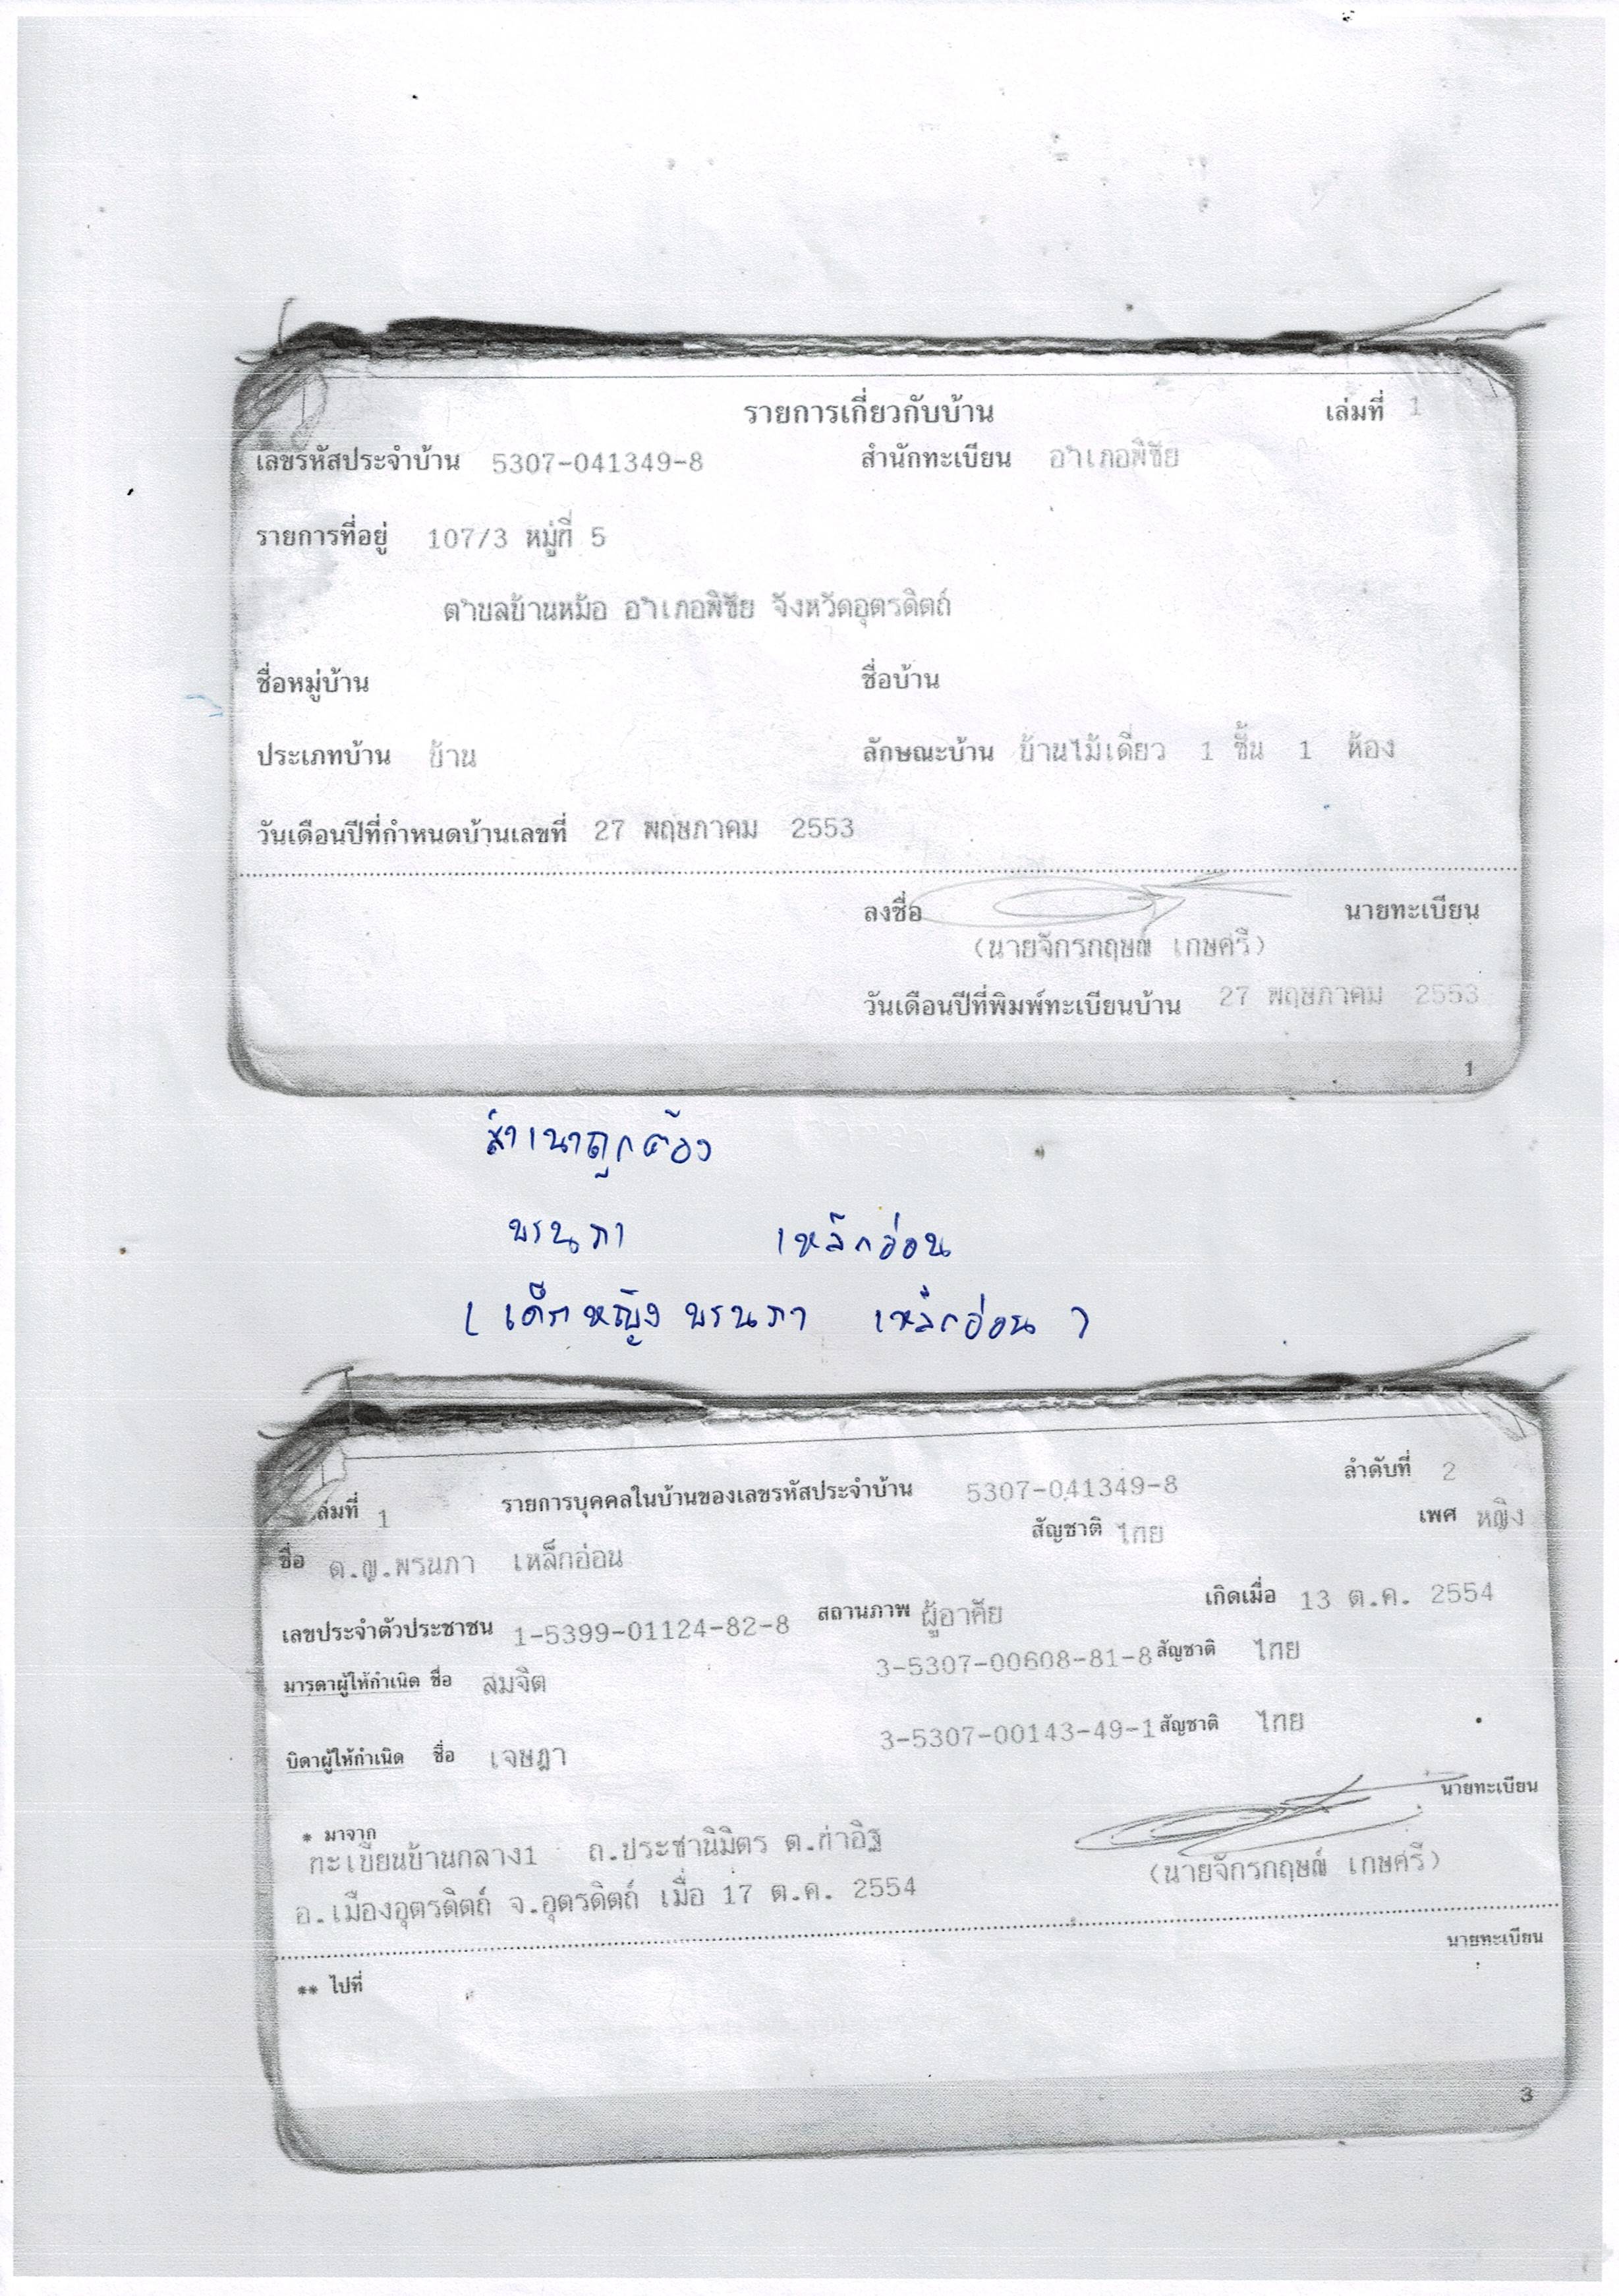 รายการเกี่ยวกับบ้าน เล่มที่ 1
เลขรหัสประจำบ้าน 5307-041349-8 สำนักทะเบียน อำเภอพิชัย
รายการที่อยู่ 107/3 หมู่ที่ 5
ตำบลบ้านหม้อ อำเภอพิชัย จังหวัดอุตรดิตถ์
ชื่อหมู่บ้าน ชื่อบ้าน
ประเภทบ้าน บ้าน ลักษณะบ้าน บ้านไม้เดี่ยว 1 ชั้น 1 ห้อง
วันเดือนปีที่กำหนดบ้านเลขที่ 27 พฤษภาคม 2553
ลงชื่อ นายทะเบียน
(นายจักรกฤษณ์ เกษศรี)
วันเดือนปีที่พิมพ์ทะเบียนบ้าน 27 พฤษภาคม 2553
1
สำเนาถูกต้อง
พรนภา เหล็กอ่อน
( เด็กหญิง พรนภา เหล็กอ่อน )
เล่มที่ 1 รายการบุคคลในบ้านของเลขรหัสประจำบ้าน 5307-041349-8 ลำดับที่ 2
ชื่อ ด.ญ.พรนภา เหล็กอ่อน สัญชาติ ไทย เพศ หญิง
เลขประจำตัวประชาชน 1-5399-01124-82-8 สถานภาพ ผู้อาศัย เกิดเมื่อ 13 ต.ค. 2554
มารดาผู้ให้กำเนิด ชื่อ สมจิต 3-5307-00608-81-8 สัญชาติ ไทย
บิดาผู้ให้กำเนิด ชื่อ เจษฎา 3-5307-00143-49-1 สัญชาติ ไทย
* มาจาก นายทะเบียน
ทะเบียนบ้านกลาง1 ถ.ประชานิมิตร ต.ท่าอิฐ (นายจักรกฤษณ์ เกษศรี)
อ.เมืองอุตรดิตถ์ จ.อุตรดิตถ์ เมื่อ 17 ต.ค. 2554
นายทะเบียน
** ไปที่
3